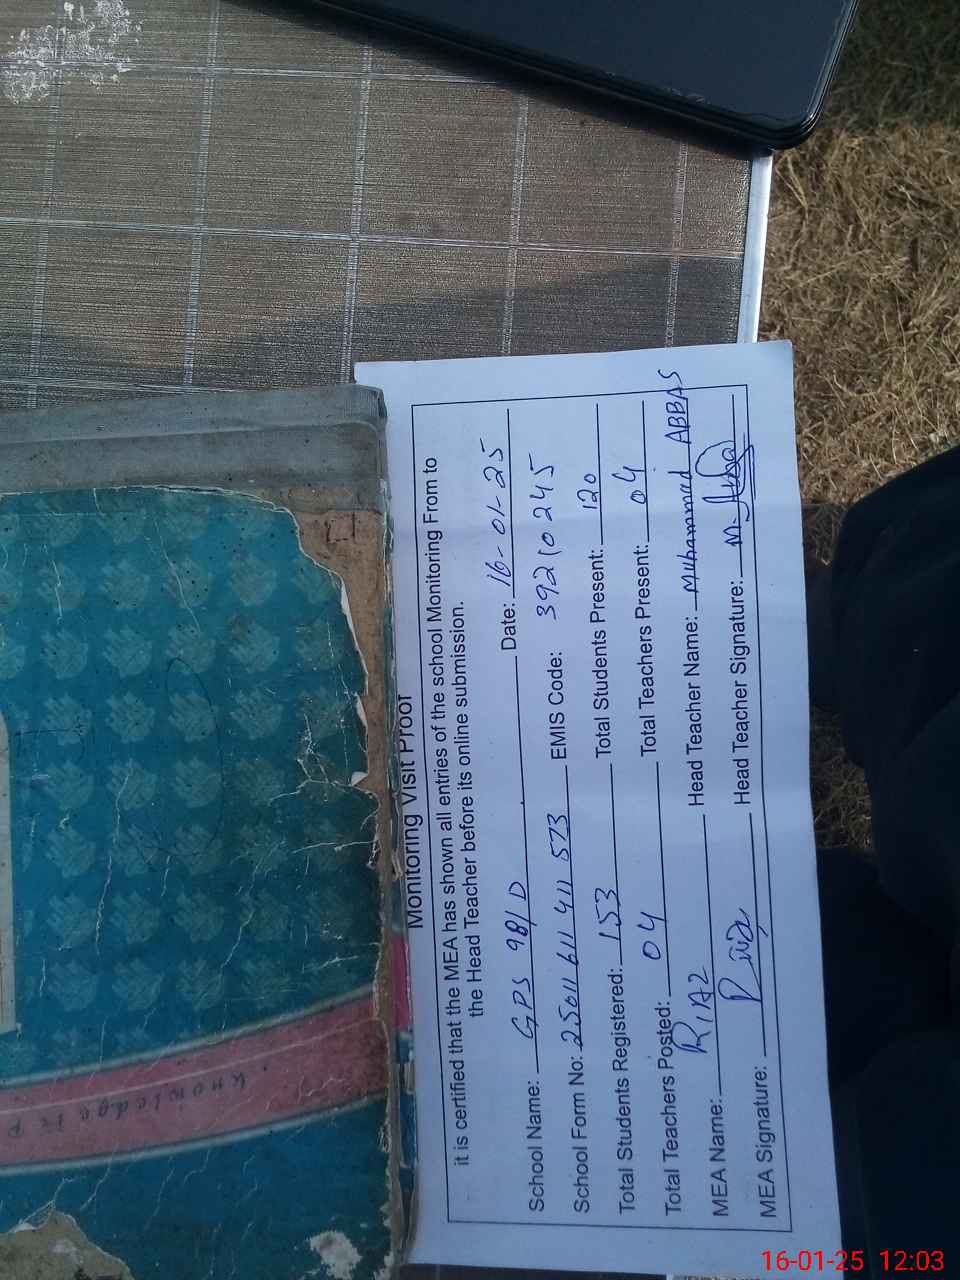 Monitoring Visit Proof
it is certified that the MEA has shown all entries of the school Monitoring From to
the Head Teacher before its online submission.
School Name: GPS 98/D Date: 16-01-25
School Form No: 25011611411573 EMIS Code: 39210245
Total Students Registered: 153 Total Students Present: 120
Total Teachers Posted: 04 Total Teachers Present: 04
MEA Name: RIAZ Head Teacher Name: Muhammad ABBAS
MEA Signature: Riaz Head Teacher Signature: M. Abbas
knowledge is P
16-01-25 12:03